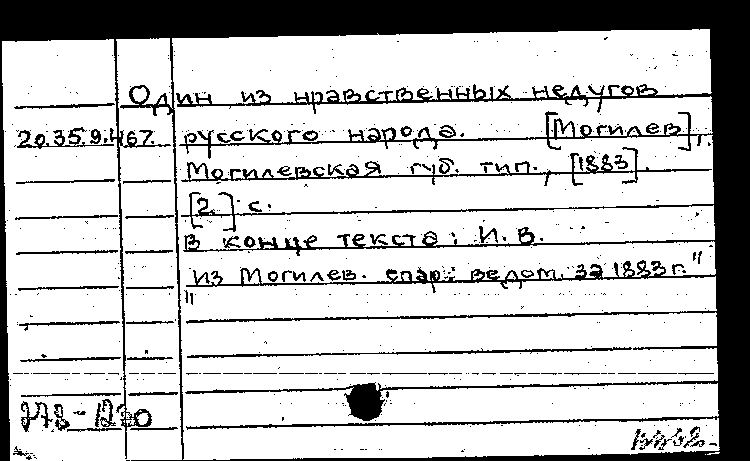 Один из нравственных недугов
20.35.9.467. русского народа. [Могилев],
Могилевская губ. тип., [1883].
[2] с.
В конце текста: И. В.
"Из Могилев. епар. ведом. за 1883 г."
278-1230